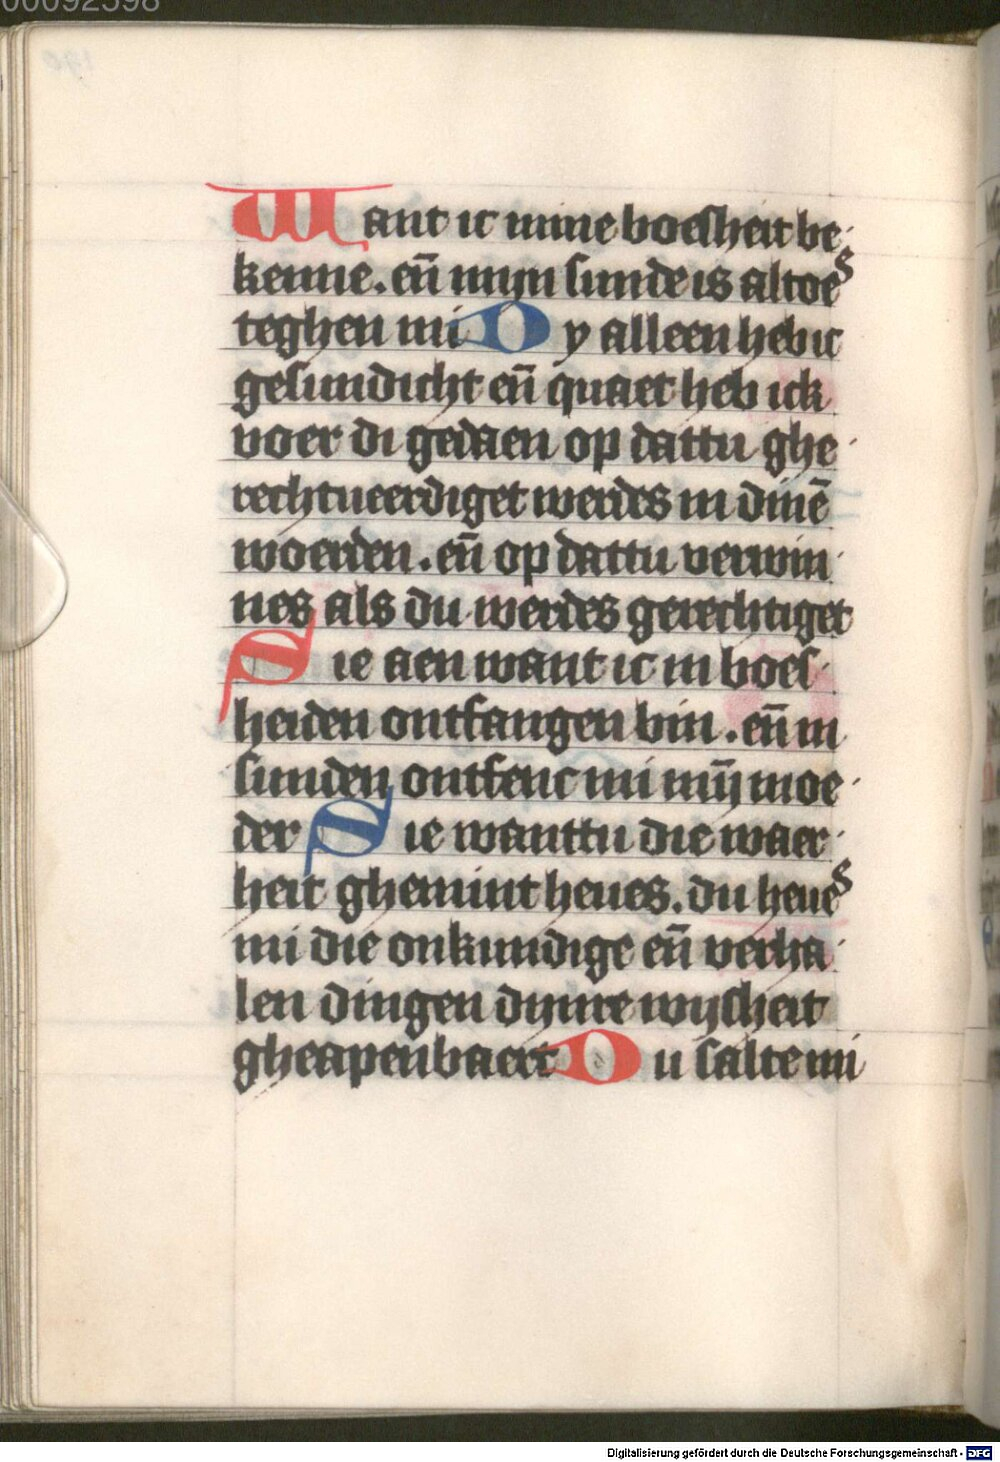 00092598
190
Want ic mine boesheit be
kenne. en̄ mijn sunde is altoes
teghen mi Dy alleen heb ic
gesundicht en̄ quaet heb ick
voer di gedaen op dattu ghe
rechtueerdiget werdes in dinē
woerden. en̄ op dattu verwin
nes als du werdes gerechtiget
Sie aen want ic in boes
heiden ontfangen bin. en̄ in
sunden ontfenc mi mij̄ moe
der Sie wanttu die waer
heit ghemint heues. du heues
mi die onkundige en̄ verha
len dingen dijnre wijsheit
gheapenbaert Du salte mi
Digitalisierung gefördert durch die Deutsche Forschungsgemeinschaft - DFG